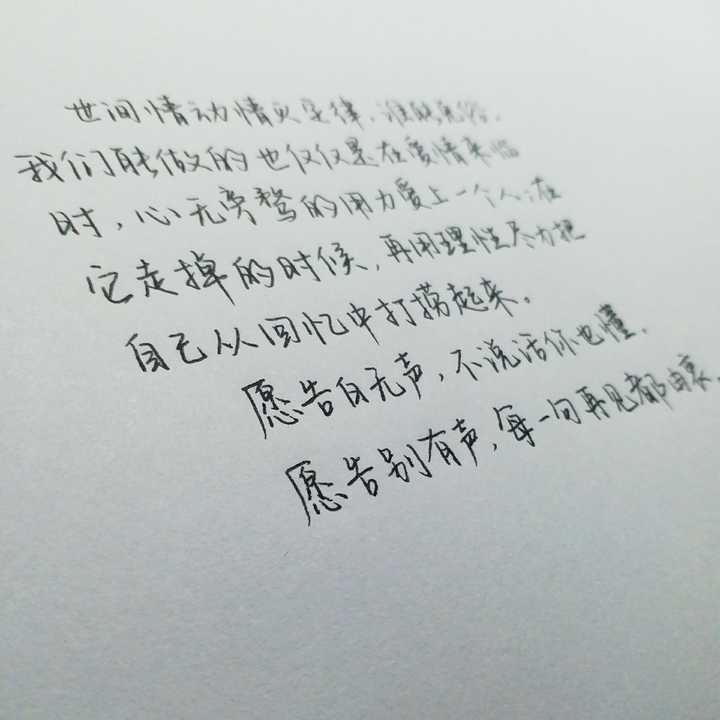 世间情动情灭定律，谁能免俗，
我们能做的也仅仅是在爱情来临
时，心无旁骛的用力爱上一个人，在
它走掉的时候，再用理性尽力把
自己从回忆中打捞起来。
愿告白无声，不说话你也懂，
愿告别有声，每一句再见都由衷。